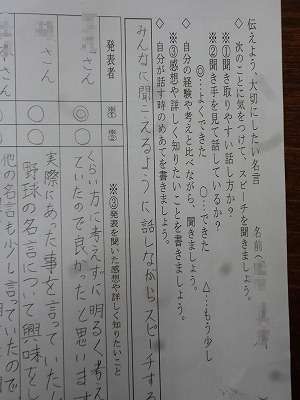 伝えよう、大切にしたい名言
名前(
◇次のことに気をつけて、スピーチを聞きましょう。
※①聞き取りやすい話し方か?
※②聞き手を見て話しているか?
◎…よくできた　○…できた　△…もう少し
◇自分の経験や考えと比べながら、聞きましょう。
※③感想や詳しく知りたいことを書きましょう。
◇自分が話す時のめあてを書きましょう。
みんなに聞こえるように話しながらスピーチする
発表者
※①
※②
※③発表を聞いた感想や詳しく知りたいこと
さん
◎
○
くらい方に考えずに明るく考え
ていたので良かったと思います
さん
○
○
実際にあった事を言っていたし
野球の名言について興味をし
さん
○
他の名言も少し言っていたので